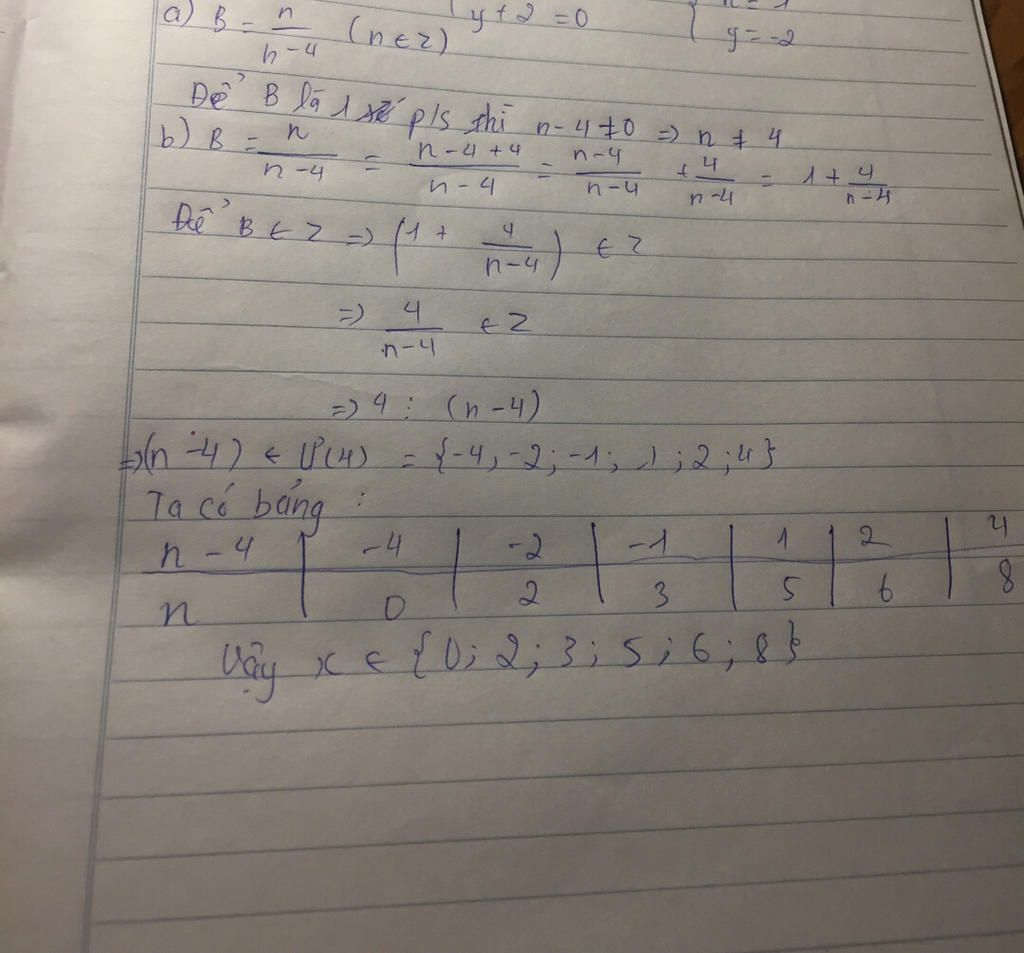 y + 2 = 0
y = -2
a) B = n/n-4 (n ∈ Z)
Để B là 1 p/s thì n - 4 ≠ 0 => n ≠ 4
b) B = n/n-4 = n-4+4/n-4 = n-4/n-4 + 4/n-4 = 1 + 4/n-4
Để B ∈ Z => (1 + 4/n-4) ∈ Z
=> 4/n-4 ∈ Z
=> 4 ⋮ (n-4)
=> (n-4) ∈ Ư(4) = {-4; -2; -1; 1; 2; 4}
Ta có bảng :
n - 4 | -4 | -2 | -1 | 1 | 2 | 4
n | 0 | 2 | 3 | 5 | 6 | 8
Vậy x ∈ {0; 2; 3; 5; 6; 8}